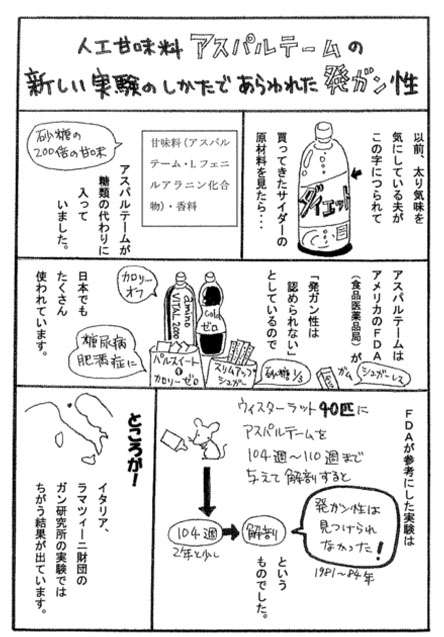 人工甘味料 アスパルテームの
新しい実験のしかたであらわれた発ガン性
以前、太り気味を
気にしている夫が
この字につられて
ダイエット
買ってきたサイダーの
原材料を見たら・・・
甘味料(アスパル
テーム・Lフェニ
ルアラニン化合
物)・香料
砂糖の
200倍の甘味
アスパルテームが
糖類の代わりに
入って
いました。
アスパルテームは
アメリカのFDA
(食品医薬品局)が
「発ガン性は
認められない」
としているので
シュガーレス
ガム
砂糖1/3
スリムアップ
シュガー
Cola
ゼロ
amino
VITAL 2000
パルスイート
カロリーゼロ
カロリー
オフ
糖尿病
肥満症に
日本でも
たくさん
使われています。
FDAが参考にした実験は
ウィスターラット40匹に
アスパルテームを
104週〜110週まで
与えて解剖すると
104週
2年と少し
解剖
発ガン性は
見つけられ
なかった!
1981〜84年
という
ものでした。
ところが!
イタリア、
ラマツィーニ財団の
ガン研究所の実験では
ちがう結果が出ています。